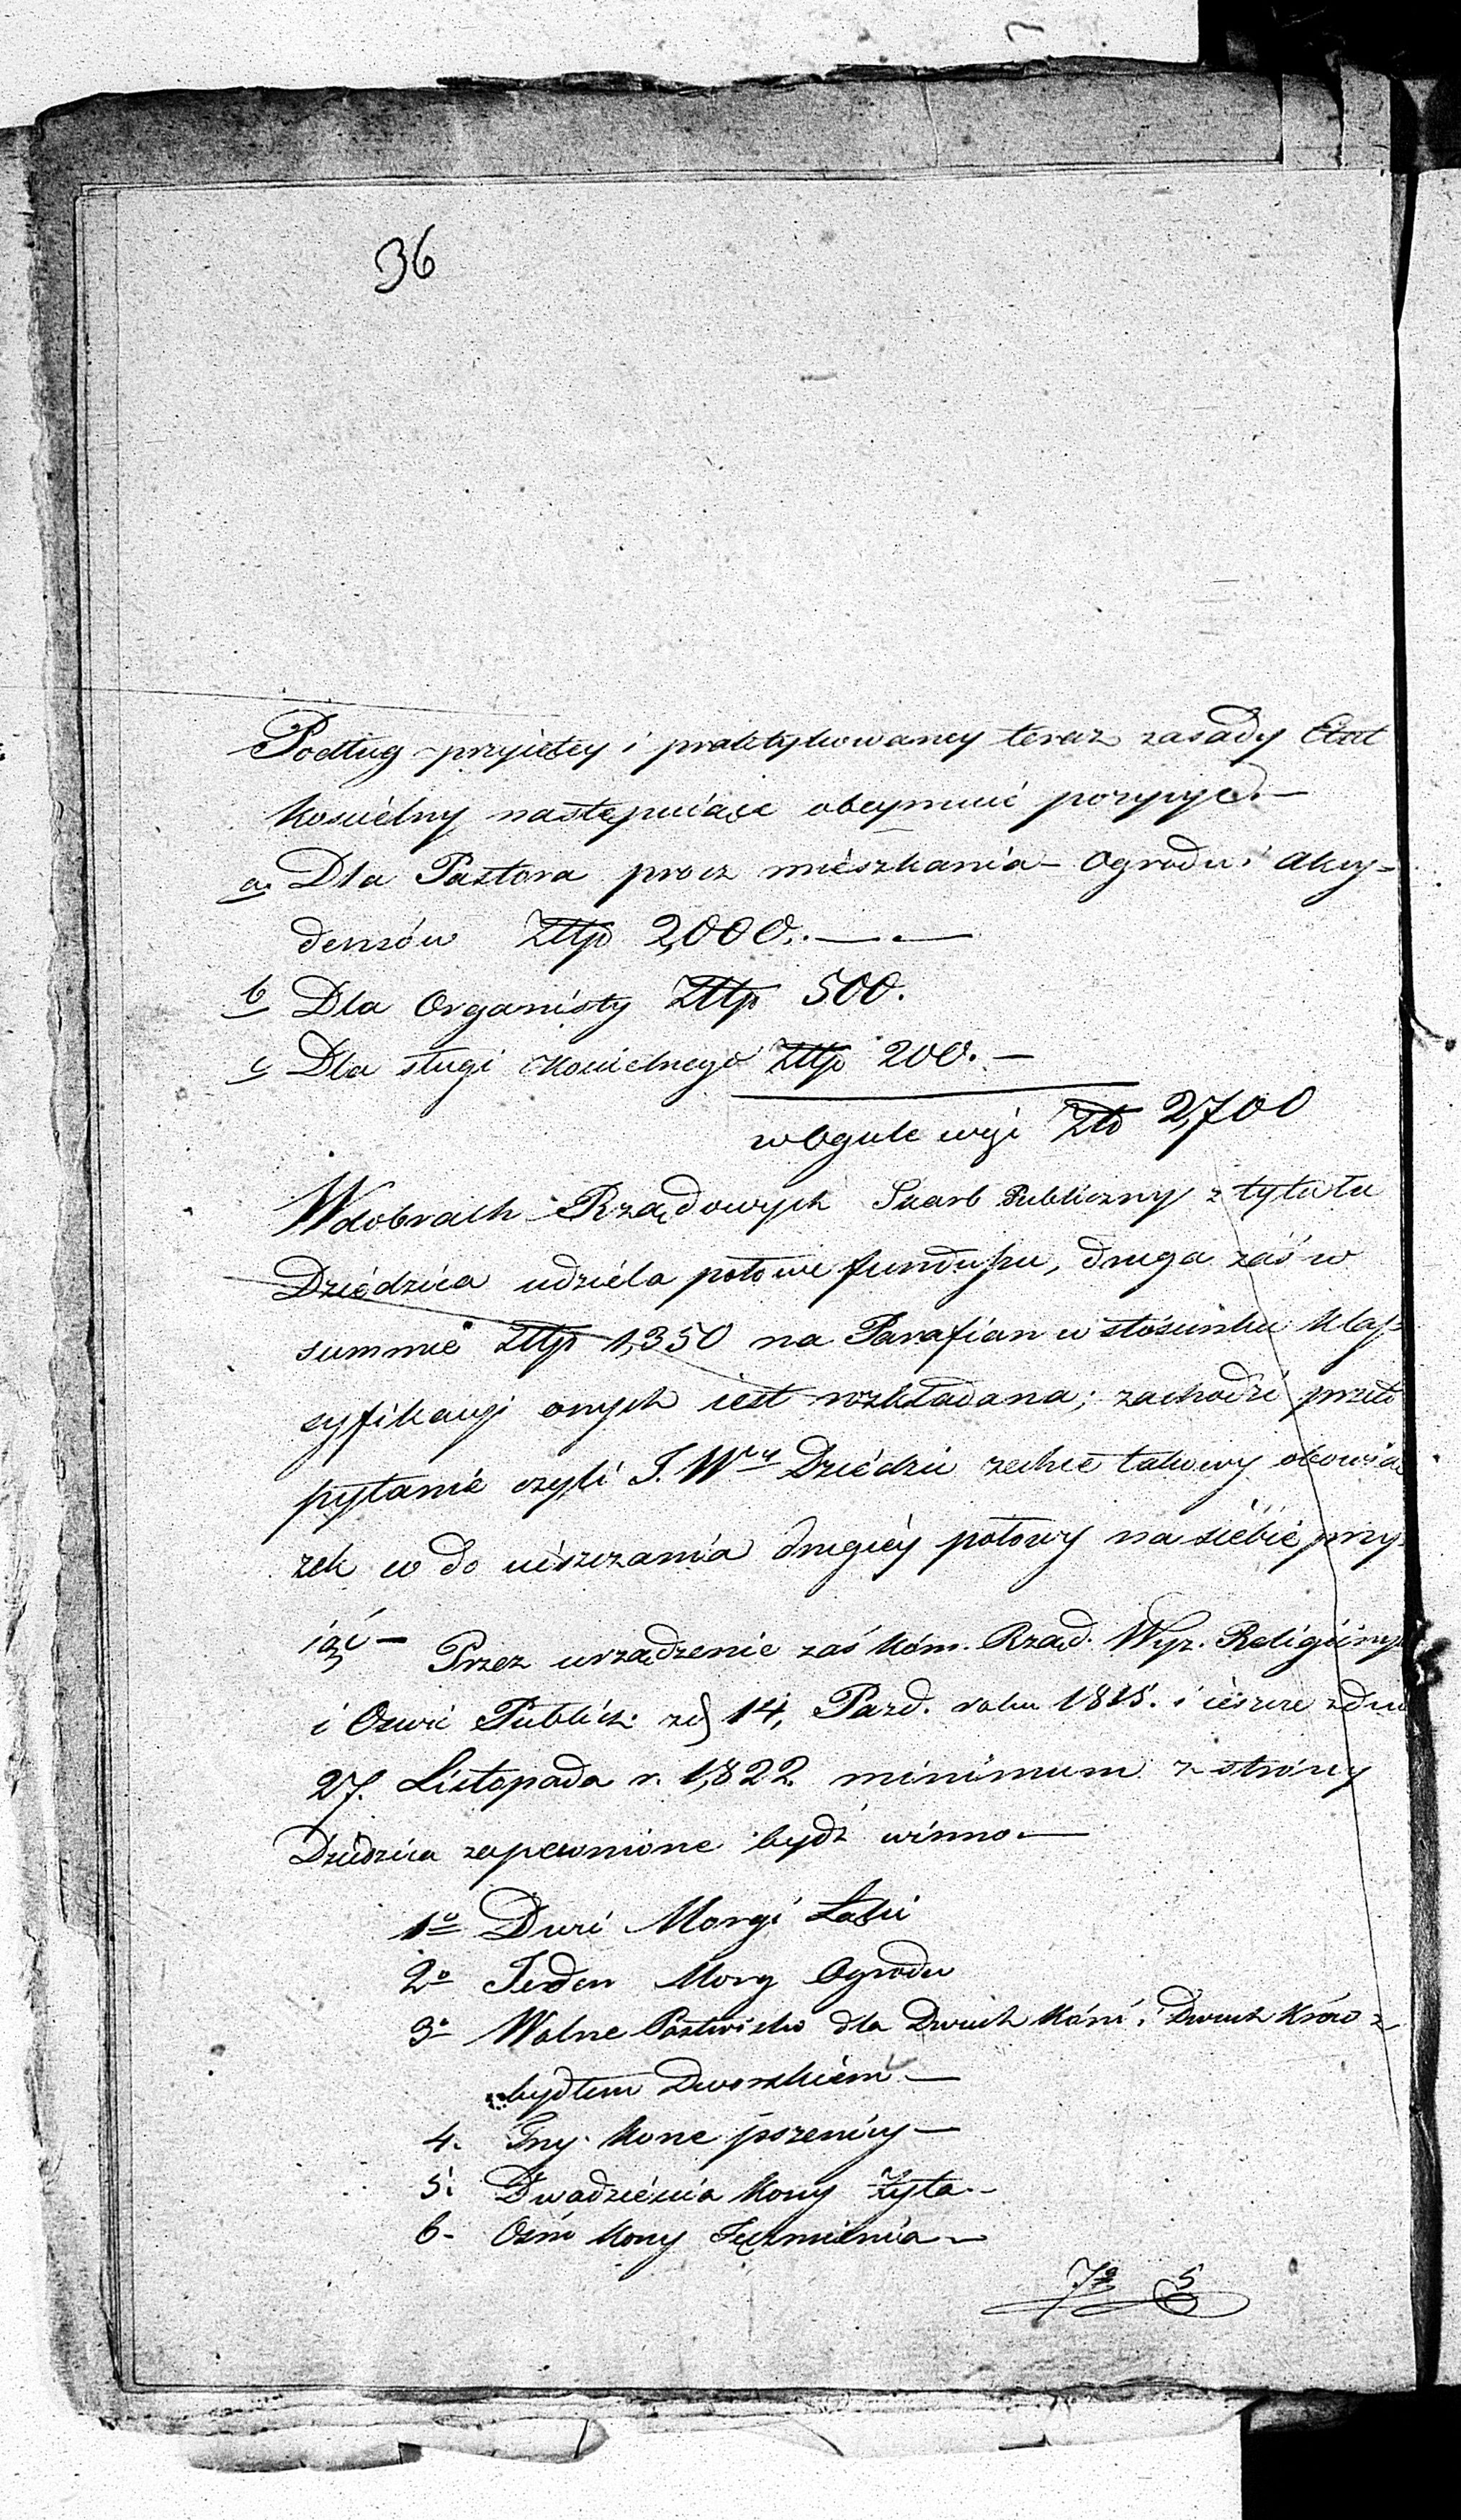 36
Podług przyietey i praktykowaney teraz zasady Etat
Kościelny następuiące obeymuie pozycye.—
a. Dla Pastora procz mieszkania – Ogrodu i akcy-
densów Złtp 2,000.—.—
b Dla Organisty Złtp 500.
c Dla sługi Kościelnego Złtp 200.—
wogule wyi Złt 2,700
W dobrach Rządowych Skarb Publiczny z tytułu
Dziedzica udziela połowe funduszu, druga zaś w
summie Złtp 1,350 na Parafian w stosunku Klas-
syfikacyi onych iest rozkładana; zachodzi przeto
pytanie czyli J. W. Dziedzic zechce takowy obowią
zek w do uiszczania drugiéy połowy na siebie przy-
iąć — Przez urządzenie zaś Kom. Rząd. Wyz. Religiinych
i Oświe Publicz: z d 14, Pazd. roku 1815. i ieszcze z dnia
27. Listopada r. 1822 minimum z strony
Dziedzica zapewnione bydź winno —
1º Dwie Morgi Łąki
2º Jeden Morg Ogrodu
3º Wolne Pastwisko dla Dwuch Koni i Dwuch Krów z
bydłem Dworskiem —
4. Trzy Korce pszenicy —
5. Dwadzieścia Korcy Żyta. –
6- Ośm Korcy Jęczmienia —
7º 5